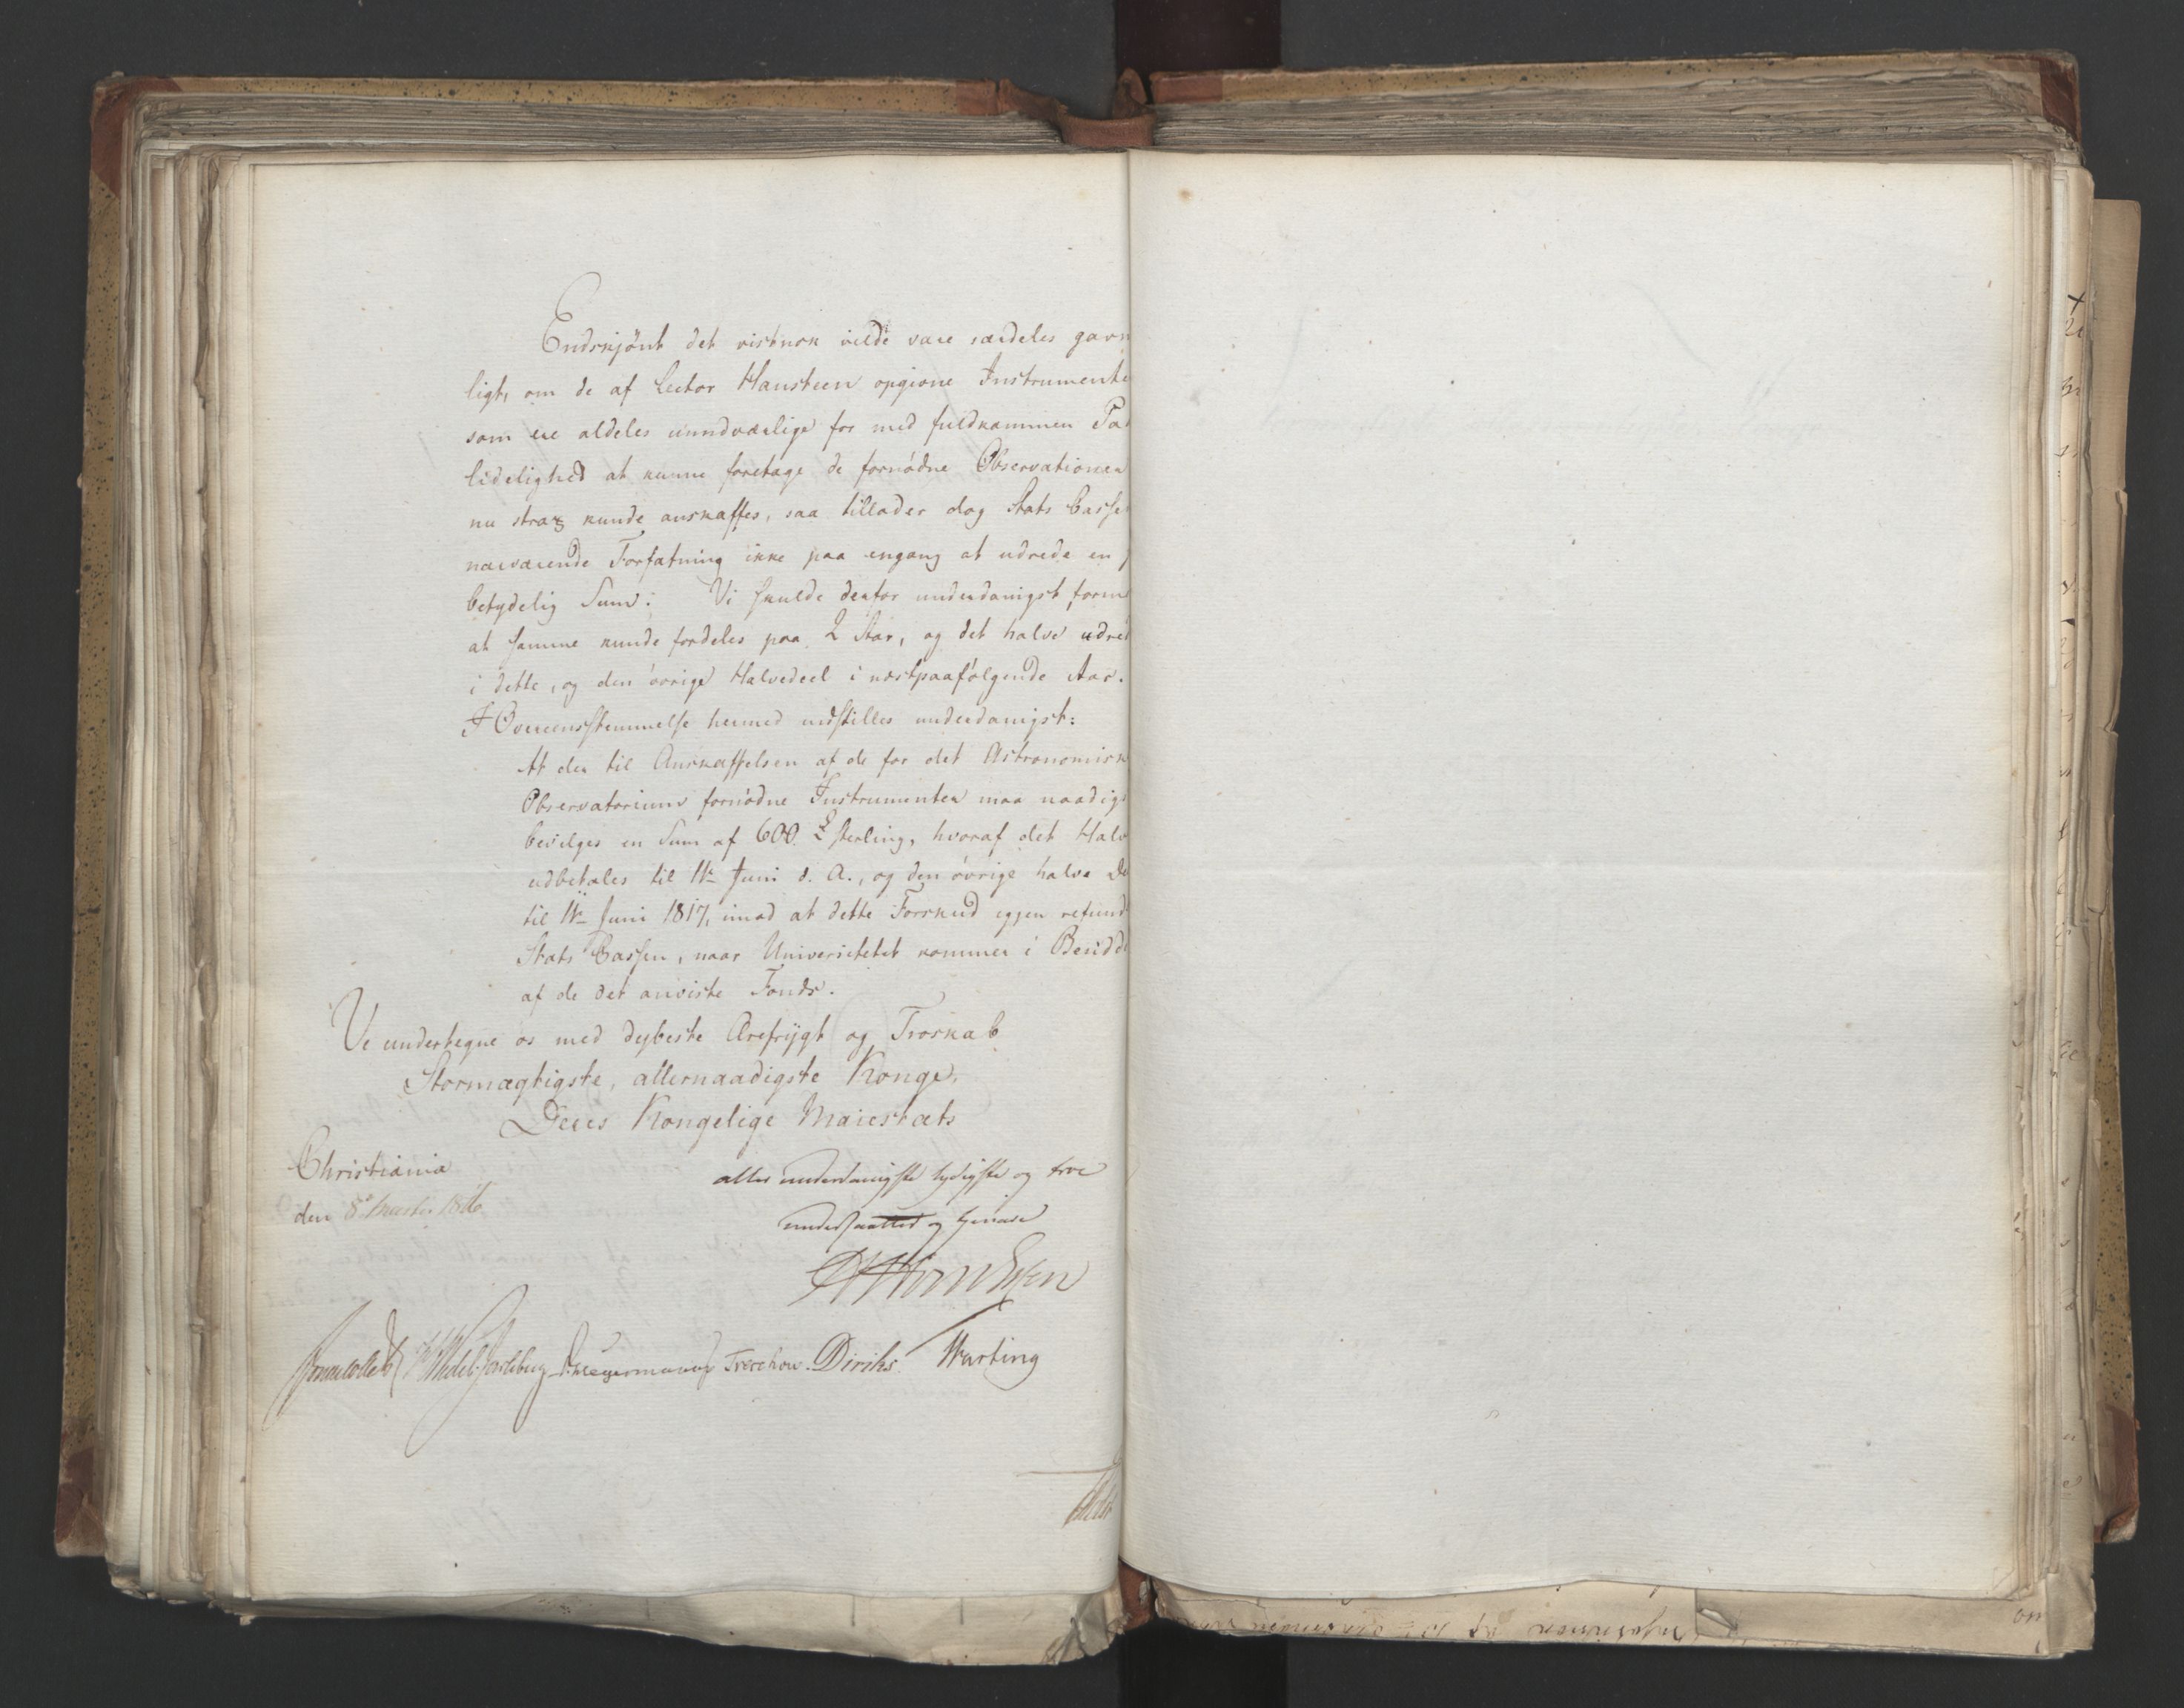 Endskjönt det vistnok vilde være særdeles gavn
ligt, om de af Lector Hansteen opgivne Instrumente
som ere aldeles uundværlige for med fuldkommen Paa
lidelighed at kunne foretage de fornødne Observationer
nu strax kunde anskaffes, saa tillader dog Stats Cassen
nærværende Forfatning ikke paa engang at udrede en
betydelig Sum: Vi skulde derfor underdanigst form
at samme kunde fordeles paa 2 Aar, og det halve udred
i dette, og den övrige Halvedeel i næstpaafølgende Aar.
I Overeensstemmelse hermed indstilles underdanigst:
At der til Anskaffelsen af de for det Astronomisk
Observatorium fornødne Instrumenter maa naadigs
bevilges en Sum af 600 £ Sterling, hvoraf det Halv
udbetales til 11te Juni d. A., og den övrige halve De
til 11te Juni 1817, imod at dette Forskud igjen refund
Stats Cassen, naar Universitetet kommer i Besidde
af de det anviste Fonds.
Vi undertegne os med dybeste Ærefrygt og Troskab
Stormægtigste, allernaadigste Konge,
Deres Kongelige Maiestæts
Christiania
den 8de Martii 1816
aller underdanigste lydigste og troe
undersaatter og tjenere
Mathias Sommerhielm
Jonas Collett HWedel-Jarlsberg Hegermann Treschow. Diriks.